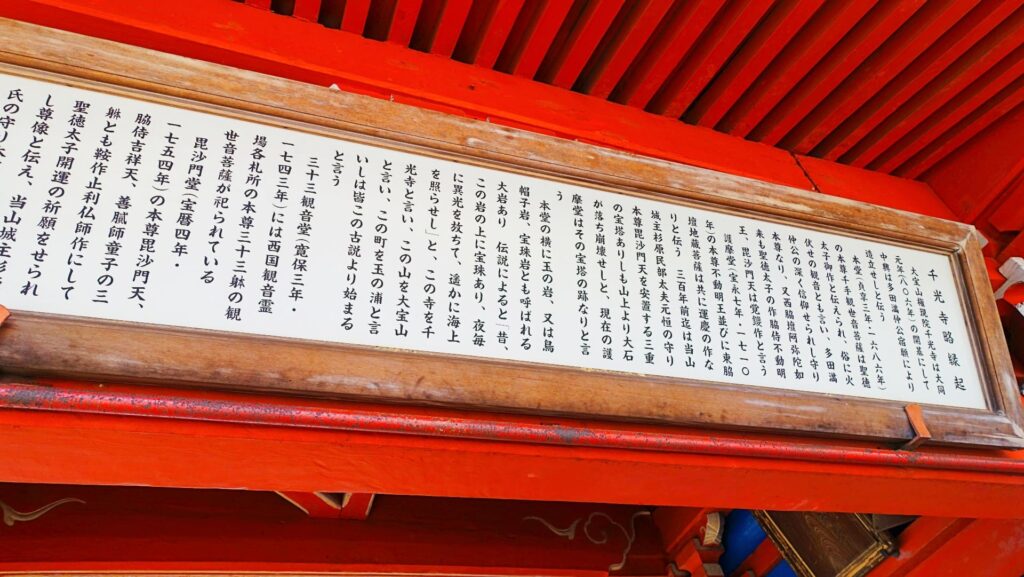 千光寺略縁起
大宝山権現院千光寺は大同
元年(八〇六年)の開基にして
中興は多田満仲公宿願により
造立せしと伝う
本堂(貞享三年・一六八六年)
の本尊千手観世音菩薩は聖徳
太子御作と伝えられ、俗に火
伏せの観音とも言い、多田満
仲公の深く信仰せられし守り
本尊なり、又西脇壇阿弥陀如
来も聖徳太子の作脇侍不動明
王、毘沙門天は覚鑁作と言う
護摩堂(宝永七年・一七一〇
年)の本尊不動明王並びに東脇
壇地蔵菩薩は共に運慶の作な
りと伝う 三百年前迄は当山
城主杉原民部太夫元恒の守り
本尊毘沙門天を安置する三重
の宝塔ありしも山上より大石
が落ち崩壊せしと、現在の護
摩堂はその宝塔の跡なりと言
う
本堂の横に玉の岩、又は烏
帽子岩、宝珠岩とも呼ばれる
大岩あり 伝説によると「昔、
この岩の上に宝珠あり、夜毎
に異光を放ちて、遥かに海上
を照らせし」と この寺を千
光寺と言い、この山を大宝山
と言い、この町を玉の浦と言
いしは皆この古説より始まる
と言う
三十三観音堂(寛保三年・
一七四三年)には西国観音霊
場各札所の本尊三十三躰の観
世音菩薩が祀られている
毘沙門堂(宝暦四年・
一七五四年)の本尊毘沙門天、
脇侍吉祥天、善膩師童子の三
躰とも鞍作止利仏師作にして
聖徳太子開運の祈願をせられ
し尊像と伝え、当山城主杉
氏の守り本